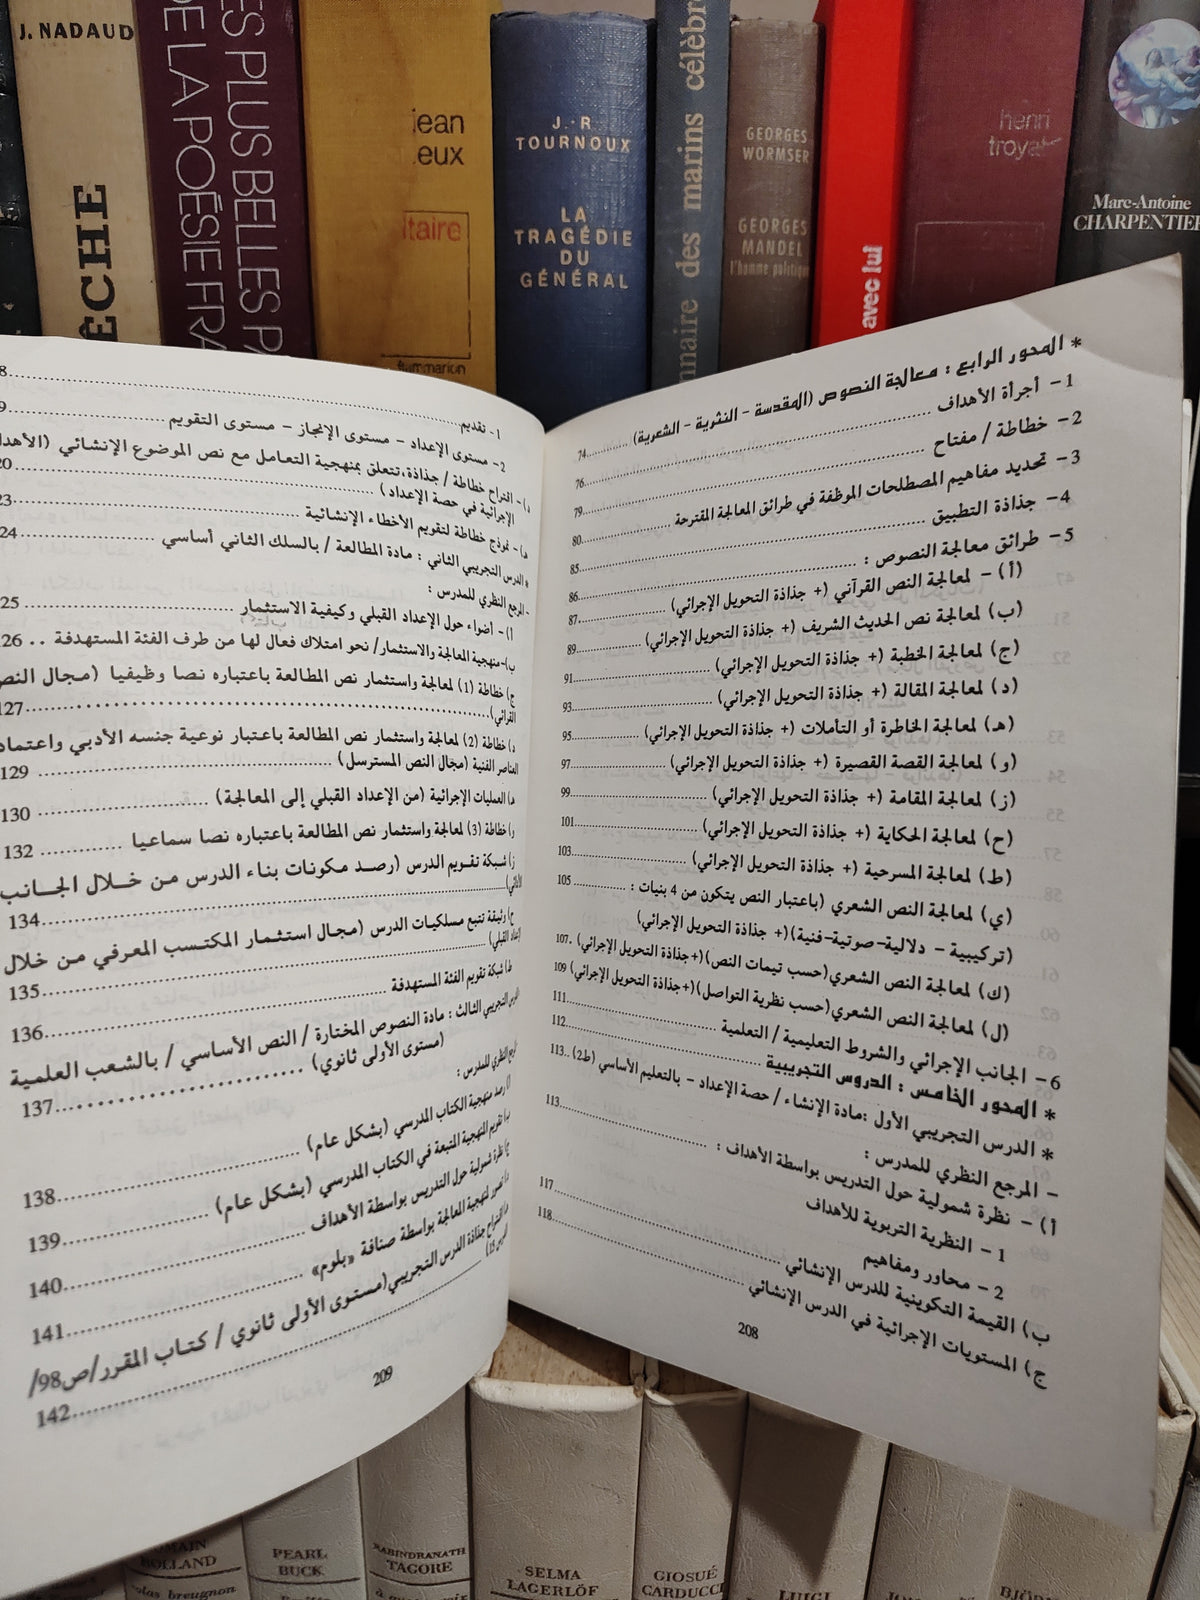 J. NADAUD
ÊCHE
ES PLUS BELLES PA
DE LA POÉSIE FRA
jean
eux
ltaire
flammarion
J.-R
TOURNOUX
LA
TRAGÉDIE
DU
GÉNÉRAL
nnaire des marins célèbr
GEORGES
WORMSER
GEORGES
MANDEL
l'homme politique
avec lui
henri
troya
Marc-Antoine
CHARPENTIER
* المحور الرابع : معالجة النصوص (المقدسة - النثرية - الشعرية) ........74
1- أجرأة الأهداف ........76
2- خطاطة / مفتاح ........79
3- تحديد مفاهيم المصطلحات الموظفة في طرائق المعالجة المقترحة ........80
4- جذاذة التطبيق ........85
5- طرائق معالجة النصوص : ........86
(أ) - لمعالجة النص القرآني (+ جذاذة التحويل الإجرائي) ........87
(ب) لمعالجة نص الحديث الشريف (+ جذاذة التحويل الإجرائي) ........89
(ج) لمعالجة الخطبة (+ جذاذة التحويل الإجرائي) ........91
(د) لمعالجة المقالة (+ جذاذة التحويل الإجرائي) ........93
(هـ) لمعالجة الخاطرة أو التأملات (+ جذاذة التحويل الإجرائي) ........95
(و) لمعالجة القصة القصيرة (+ جذاذة التحويل الإجرائي) ........97
(ز) لمعالجة المقامة (+ جذاذة التحويل الإجرائي) ........99
(ح) لمعالجة الحكاية (+ جذاذة التحويل الإجرائي) ........101
(ط) لمعالجة المسرحية (+ جذاذة التحويل الإجرائي) ........103
(ي) لمعالجة النص الشعري (باعتبار النص يتكون من 4 بنيات : ........105
(تركيبية - دلالية-صوتية-فنية)(+ جذاذة التحويل الإجرائي)
(ك) لمعالجة النص الشعري(حسب تيمات النص)(+جذاذة التحويل الإجرائي) .107
(ل) لمعالجة النص الشعري(حسب نظرية التواصل)(+جذاذة التحويل الإجرائي) 109
6- الجانب الإجرائي والشروط التعليمية / التعلمية ........111
* المحور الخامس : الدروس التجريبية ........112
* الدرس التجريبي الأول :مادة الإنشاء / حصة الإعداد - بالتعليم الأساسي (ط2) ..113
- المرجع النظري للمدرس :
أ) - نظرة شمولية حول التدريس بواسطة الأهداف : ........113
1 - النظرية التربوية للأهداف
2 - محاور ومفاهيم
ب) القيمة التكوينية للدرس الإنشائي ........117
ج) المستويات الإجرائية في الدرس الإنشائي ........118
208
1- تقديم ........8
2- مستوى الإعداد - مستوى الإنجاز - مستوى التقويم ........9
د)- اقتراح خطاطة / جذاذة،تتعلق بمنهجية التعامل مع نص الموضوع الإنشائي (الأهدا
الإجرائية في حصة الإعداد ) ........20
هـ)- نموذج خطاطة لتقويم الأخطاء الإنشائية ........23
* الدرس التجريبي الثاني : مادة المطالعة / بالسلك الثاني أساسي ........24
- المرجع النظري للمدرس :
أ) - أضواء حول الإعداد القبلي وكيفية الاستثمار ........25
ب)-منهجية المعالجة والاستثمار/ نحو امتلاك فعال لها من طرف الفئة المستهدفة .. 126
ج) خطاطة (1) لمعالجة واستثمار نص المطالعة باعتباره نصا وظيفيا (مجال النص
القرائي) ........127
د) خطاطة (2) لمعالجة واستثمار نص المطالعة باعتبار نوعية جنسه الأدبي واعتماد
العناصر الفنية (مجال النص المسترسل) ........129
هـ) العمليات الإجرائية (من الإعداد القبلي إلى المعالجة) ........130
و) خطاطة (3) لمعالجة واستثمار نص المطالعة باعتباره نصا سماعيا ........132
ز) شبكة تقويم الدرس (رصد مكونات بناء الدرس من خلال الجانب
........134
ح) وثيقة تتبع مسلكيات الدرس (مجال استثمار المكتسب المعرفي من خلال
الإعداد القبلي) ........135
ط) شبكة تقويم الفئة المستهدفة ........136
الدرس التجريبي الثالث : مادة النصوص المختارة / النص الأساسي / بالشعب العلمية
(مستوى الأولى ثانوي) ........137
المرجع النظري للمدرس :
أ) رصد منهجية الكتاب المدرسي (بشكل عام) ........138
ب) تقويم المنهجية المتبعة في الكتاب المدرسي (بشكل عام) ........139
ج) نظرة شمولية حول التدريس بواسطة الأهداف ........140
د) تصور لمنهجية المعالجة بواسطة صنافة «بلوم» ........141
هـ) اقتراح جذاذة الدرس التجريبي(مستوى الأولى ثانوي / كتاب المقرر/ص98/
الدرس 15) ........142
209
ROMAIN
ROLLAND
colas breugnon
PEARL
BUCK
RABINDRANATH
TAGORE
SELMA
LAGERLÖF
GIOSUÉ
CARDUCCI
LUIGI
BJÖRN